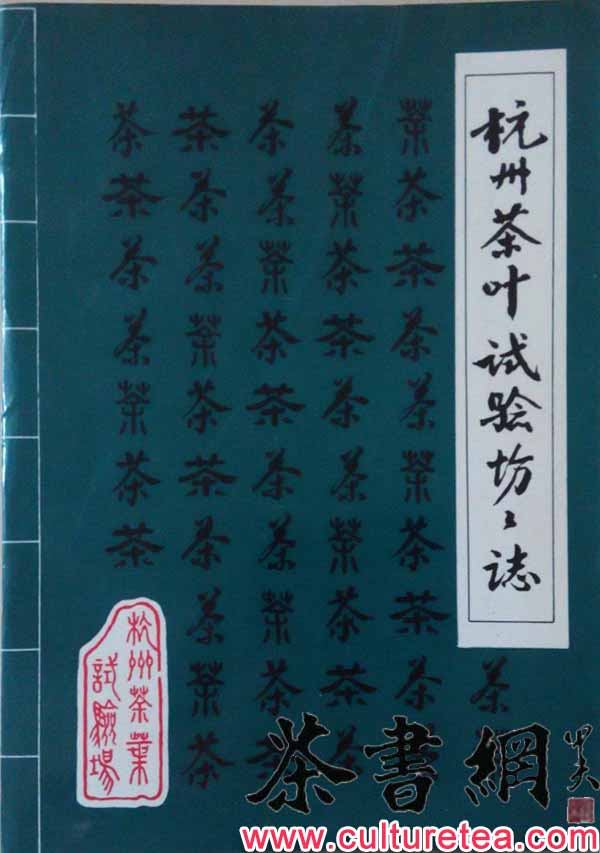 杭州茶叶试验场々誌
茶茶
茶茶茶茶茶茶茶茶茶茶
茶茶茶茶茶茶茶茶茶茶
茶茶茶茶茶茶茶茶茶茶
茶茶茶茶茶茶茶茶茶茶
茶茶茶茶茶茶茶
杭州茶葉
試驗場
茶書網
www.culturetea.com